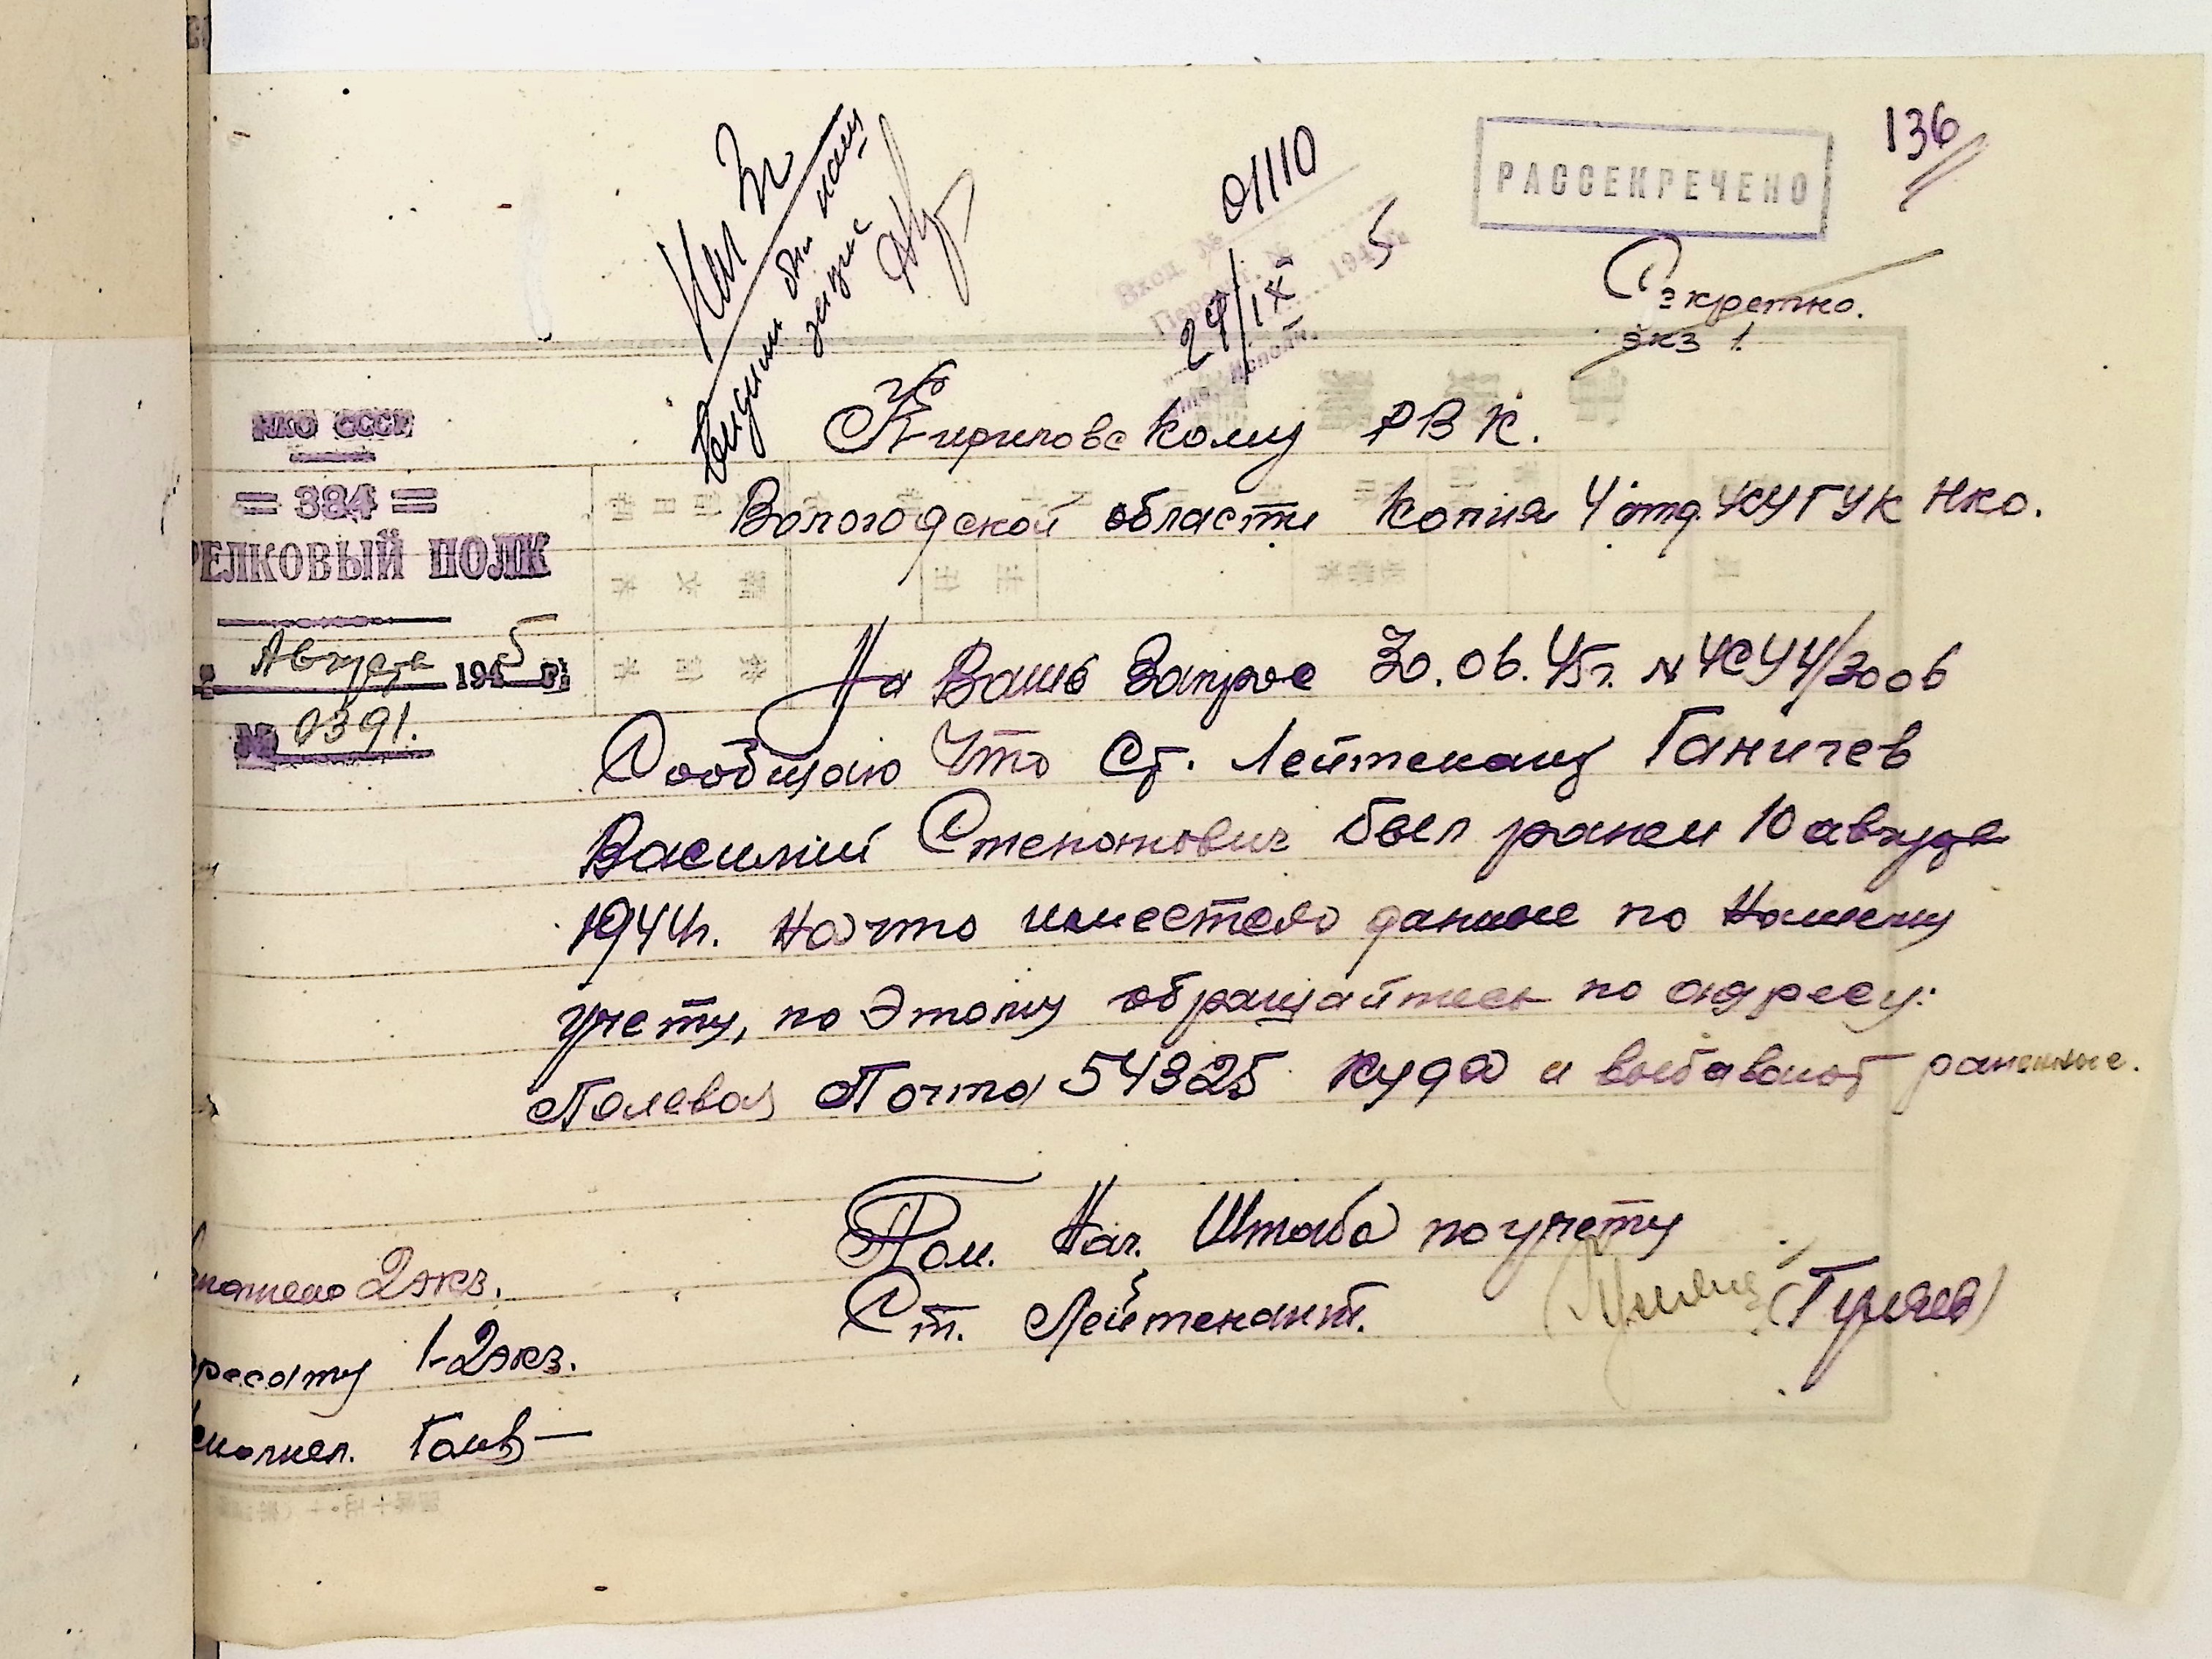 136
РАССЕКРЕЧЕНО
Секретно.
экз 1.
01110
Вход. №
29/IX 1945
НКО СССР
= 384 =
РЕЛКОВЫЙ ПОЛК
Августа 1945 г.
№ 0391.
Кириловскому РВК.
Вологодской области Копия 4 отд. УСУ ГУК НКО.
На Вашь Запрос 30.06.45г. № УСУ4/3006
Сообщаю Что Ст. Лейтенант Ганичев
Василий Степанович был ранен 10 августа
1944г. На что имеется данные по Нашему
учету, по Этому обращайтесь по адресу:
Полевая Почта 54325 Куда и выбавают раненные.
Пом. Нач. Штаба по учету
Ст. Лейтенант. (Гуляев)
2 экз.
ресату 1-2экз.